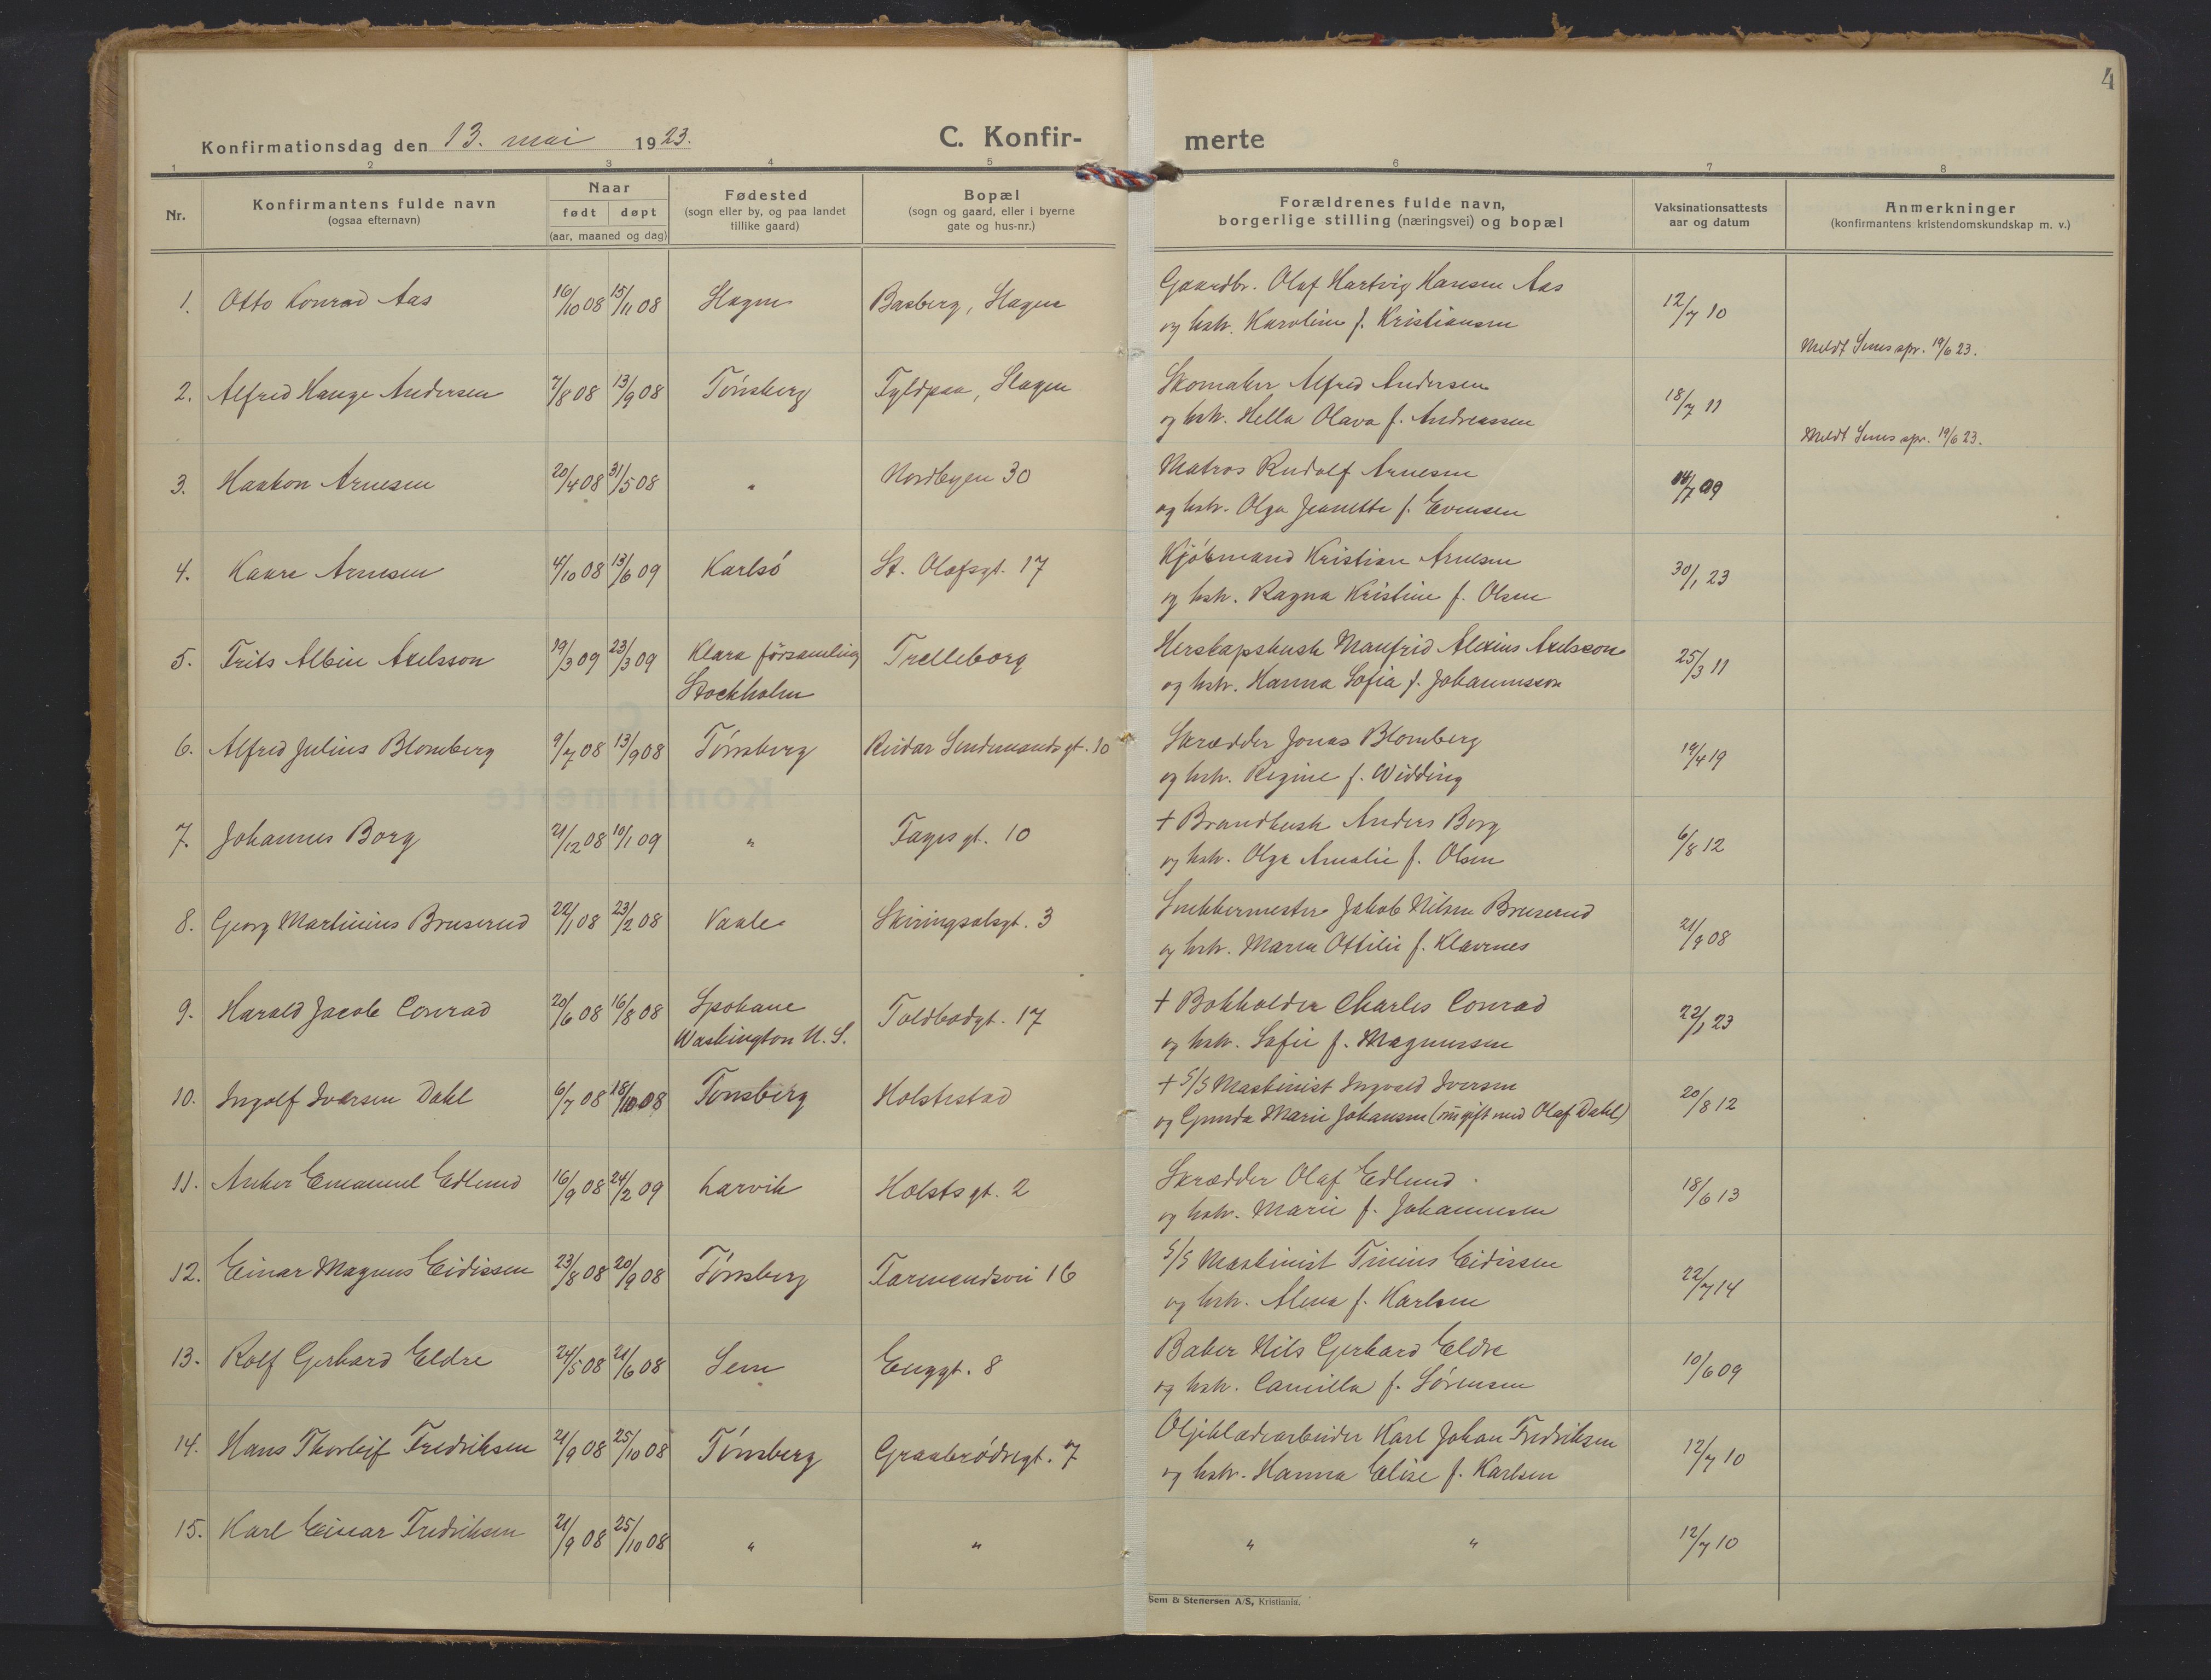 4
Konfirmationsdag den 13. mai 1923.
C. Konfir-
merte
1 2 3 4 5 6 7 8
Nr.
Konfirmantens fulde navn
(ogsaa efternavn)
Naar
født døpt
(aar, maaned og dag)
Fødested
(sogn eller by, og paa landet
tillike gaard)
Bopæl
(sogn og gaard, eller i byerne
gate og hus-nr.)
Forældrenes fulde navn,
borgerlige stilling (næringsvei) og bopæl
Vaksinationsattests
aar og datum
Anmerkninger
(konfirmantens kristendomskundskap m. v.)
1. Otto Konrad Aas 16/10 08 15/11 08 Slagen Basberg, Slagen
Gaardbr. Olaf Hartvig Hansen Aas
og hstr. Karoline f. Kristiansen 12/7 10
Meldt Sems spr. 19/6 23.
2. Alfred Hauge Andersen 7/8 08 13/9 08 Tønsberg Fyldpaa, Slagen
Skomaker Alfred Andersen
og hstr. Hella Olava f. Andreassen 18/7 11
Meldt Sems spr. 19/6 23.
3. Haakon Arnesen 20/4 08 31/5 08 " Nordbyen 30
Matros Rudolf Arnesen
og hstr. Olga Jeanette f. Evensen /7 09
4. Kaare Arnesen 4/10 08 13/6 09 Karlsø St. Olafsgt. 17
Kjøbmand Kristian Arnesen
og hstr. Ragna Kristine f. Olsen 30/1 23
5. Frits Albin Axelsson 19/3 09 23/3 09 Klara församling Trelleborg
Stockholm
Herskapskusk Manfrid Alexius Axelsson
og hstr. Hanna Sofia f. Johannesson 25/3 11
6. Alfred Julius Blomberg 9/7 08 13/9 08 Tønsberg Reidar Sendemandsgt. 10
Skrædder Jonas Blomberg
og hstr. Regine f. Widding 19/4 19
7. Johannes Borg 21/12 08 10/1 09 " Fayesgt. 10
+ Brandkusk Anders Borg
og hstr. Olga Amalie f. Olsen 6/8 12
8. Georg Martinius Bruserud 22/1 08 23/2 08 Vaale Skiringsalsgt. 3
Snekkermester Jakob Nilsen Bruserud
og hstr. Maren Ottilie f. Klavenes 21/9 08
9. Harald Jacob Conrad 20/6 08 16/8 08 Spokane Toldbodgt. 17
Washington U. S.
+ Bokholder Charles Conrad
og hstr. Sofie f. Magnussen 22/1 23
10. Ingolf Iversen Dahl 6/7 08 18/10 08 Tønsberg Holstestad
+ S/S Maskinist Ingvald Iversen
og Gunda Marie Johansen (nu gift med Olaf Dahl) 20/8 12
11. Anker Emanuel Edlund 16/9 08 24/2 09 Larvik Holstsgt. 2
Skrædder Olaf Edlund.
og hstr. Marie f. Johannesen 18/6 13
12. Einar Magnus Eidissen 23/8 08 20/9 08 Tønsberg Farmandsvei 16
S/S Maskinist Tinius Eidissen
og hstr. Alma f. Karlsen 22/7 14
13. Rolf Gerhard Eldre 24/5 08 21/6 08 Sem Enggt. 8
Baker Nils Gerhard Eldre
og hstr. Camilla f. Sørensen 10/6 09
14. Hans Thorleif Fredriksen 21/9 08 25/10 08 Tønsberg Graabrødregt. 7
Oljeklædearbeider Karl Johan Fredriksen
og hstr. Hanna Elise f. Karlsen 12/7 10
15. Karl Einar Fredriksen 21/9 08 25/10 08 " "
" " 12/7 10
Sem & Stenersen A/S, Kristiania.